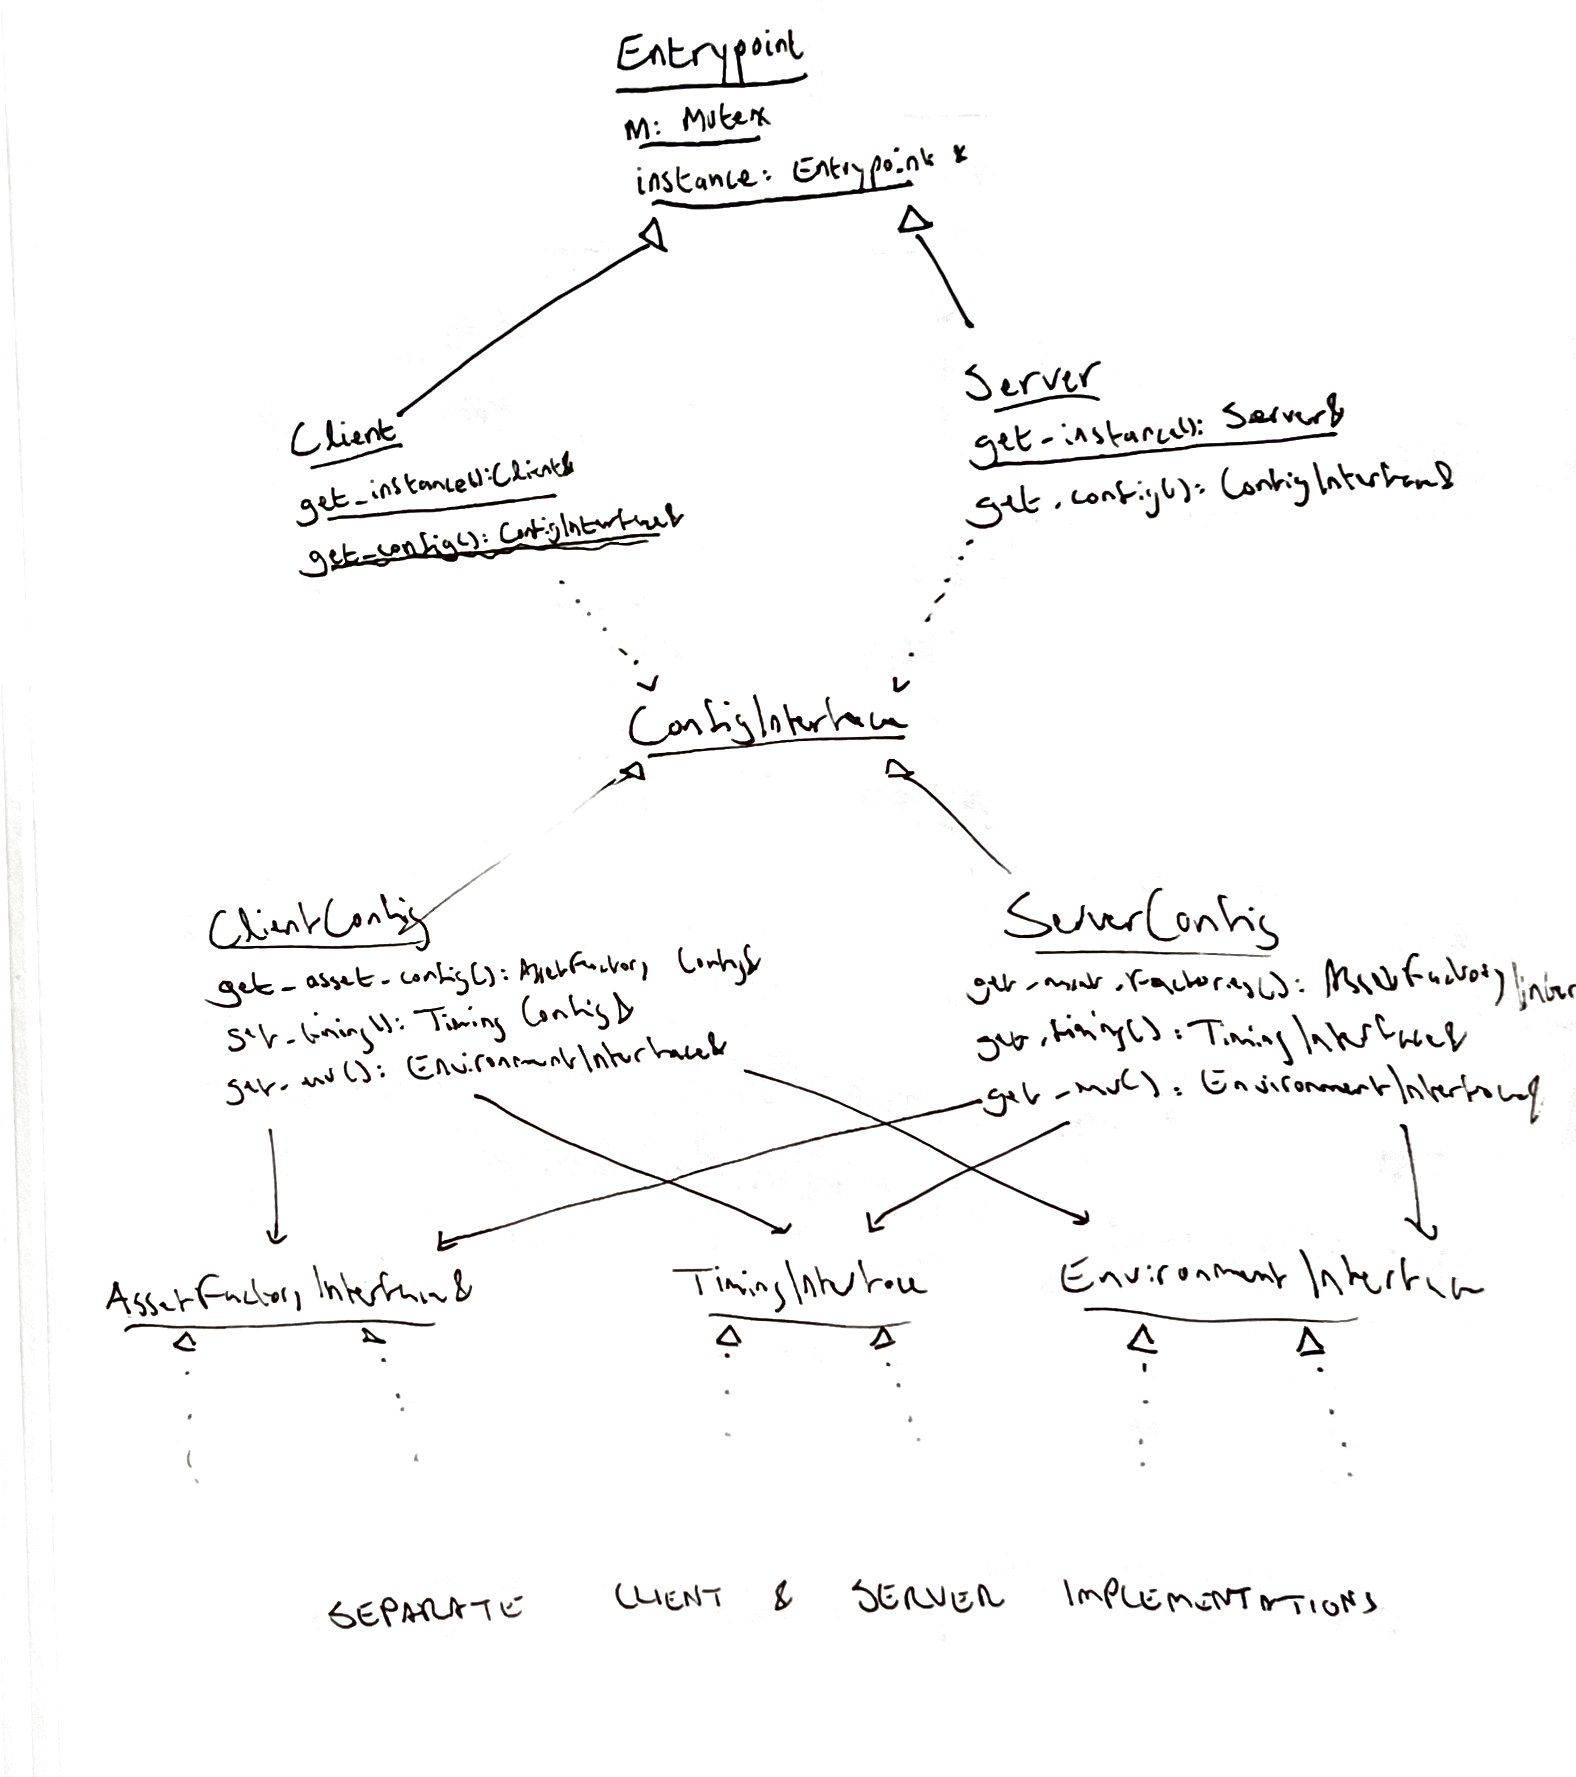 Entrypoint
M: Mutex
instance: Entrypoint *
Server
get_instance(): Server&
get_config(): ConfigInterface&
Client
get_instance(): Client&
get_config(): ConfigInterface&
ConfigInterface
ClientConfig
get_asset_config(): AssetFactory Config&
get_timing(): Timing Config&
get_env(): EnvironmentInterface&
ServerConfig
AssetFactory Inter
get_timing(): TimingInterface&
get_env(): EnvironmentInterface&
AssetFactoryInterface&
TimingInterface
EnvironmentInterface
SEPARATE CLIENT & SERVER IMPLEMENTATIONS